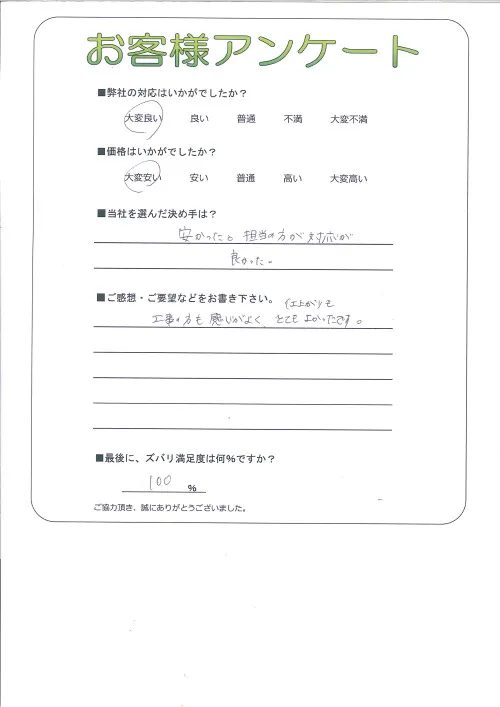 お客様アンケート
■弊社の対応はいかがでしたか？
大変良い 良い 普通 不満 大変不満
■価格はいかがでしたか？
大変安い 安い 普通 高い 大変高い
■当社を選んだ決め手は？
安かったと 担当の方が対応が
良かった。
■ご感想・ご要望などをお書き下さい。 仕上がりも
工事の方も感じがよく、とてもよかったです。
■最後に、ズバリ満足度は何％ですか？
100 %
ご協力頂き、誠にありがとうございました。